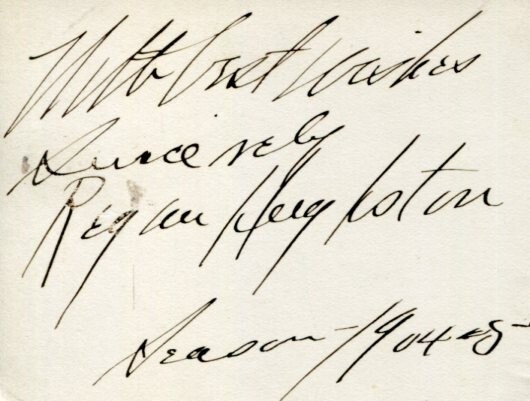 With best wishes
Sincerely
Regan Hughston
Season - 1904-05-